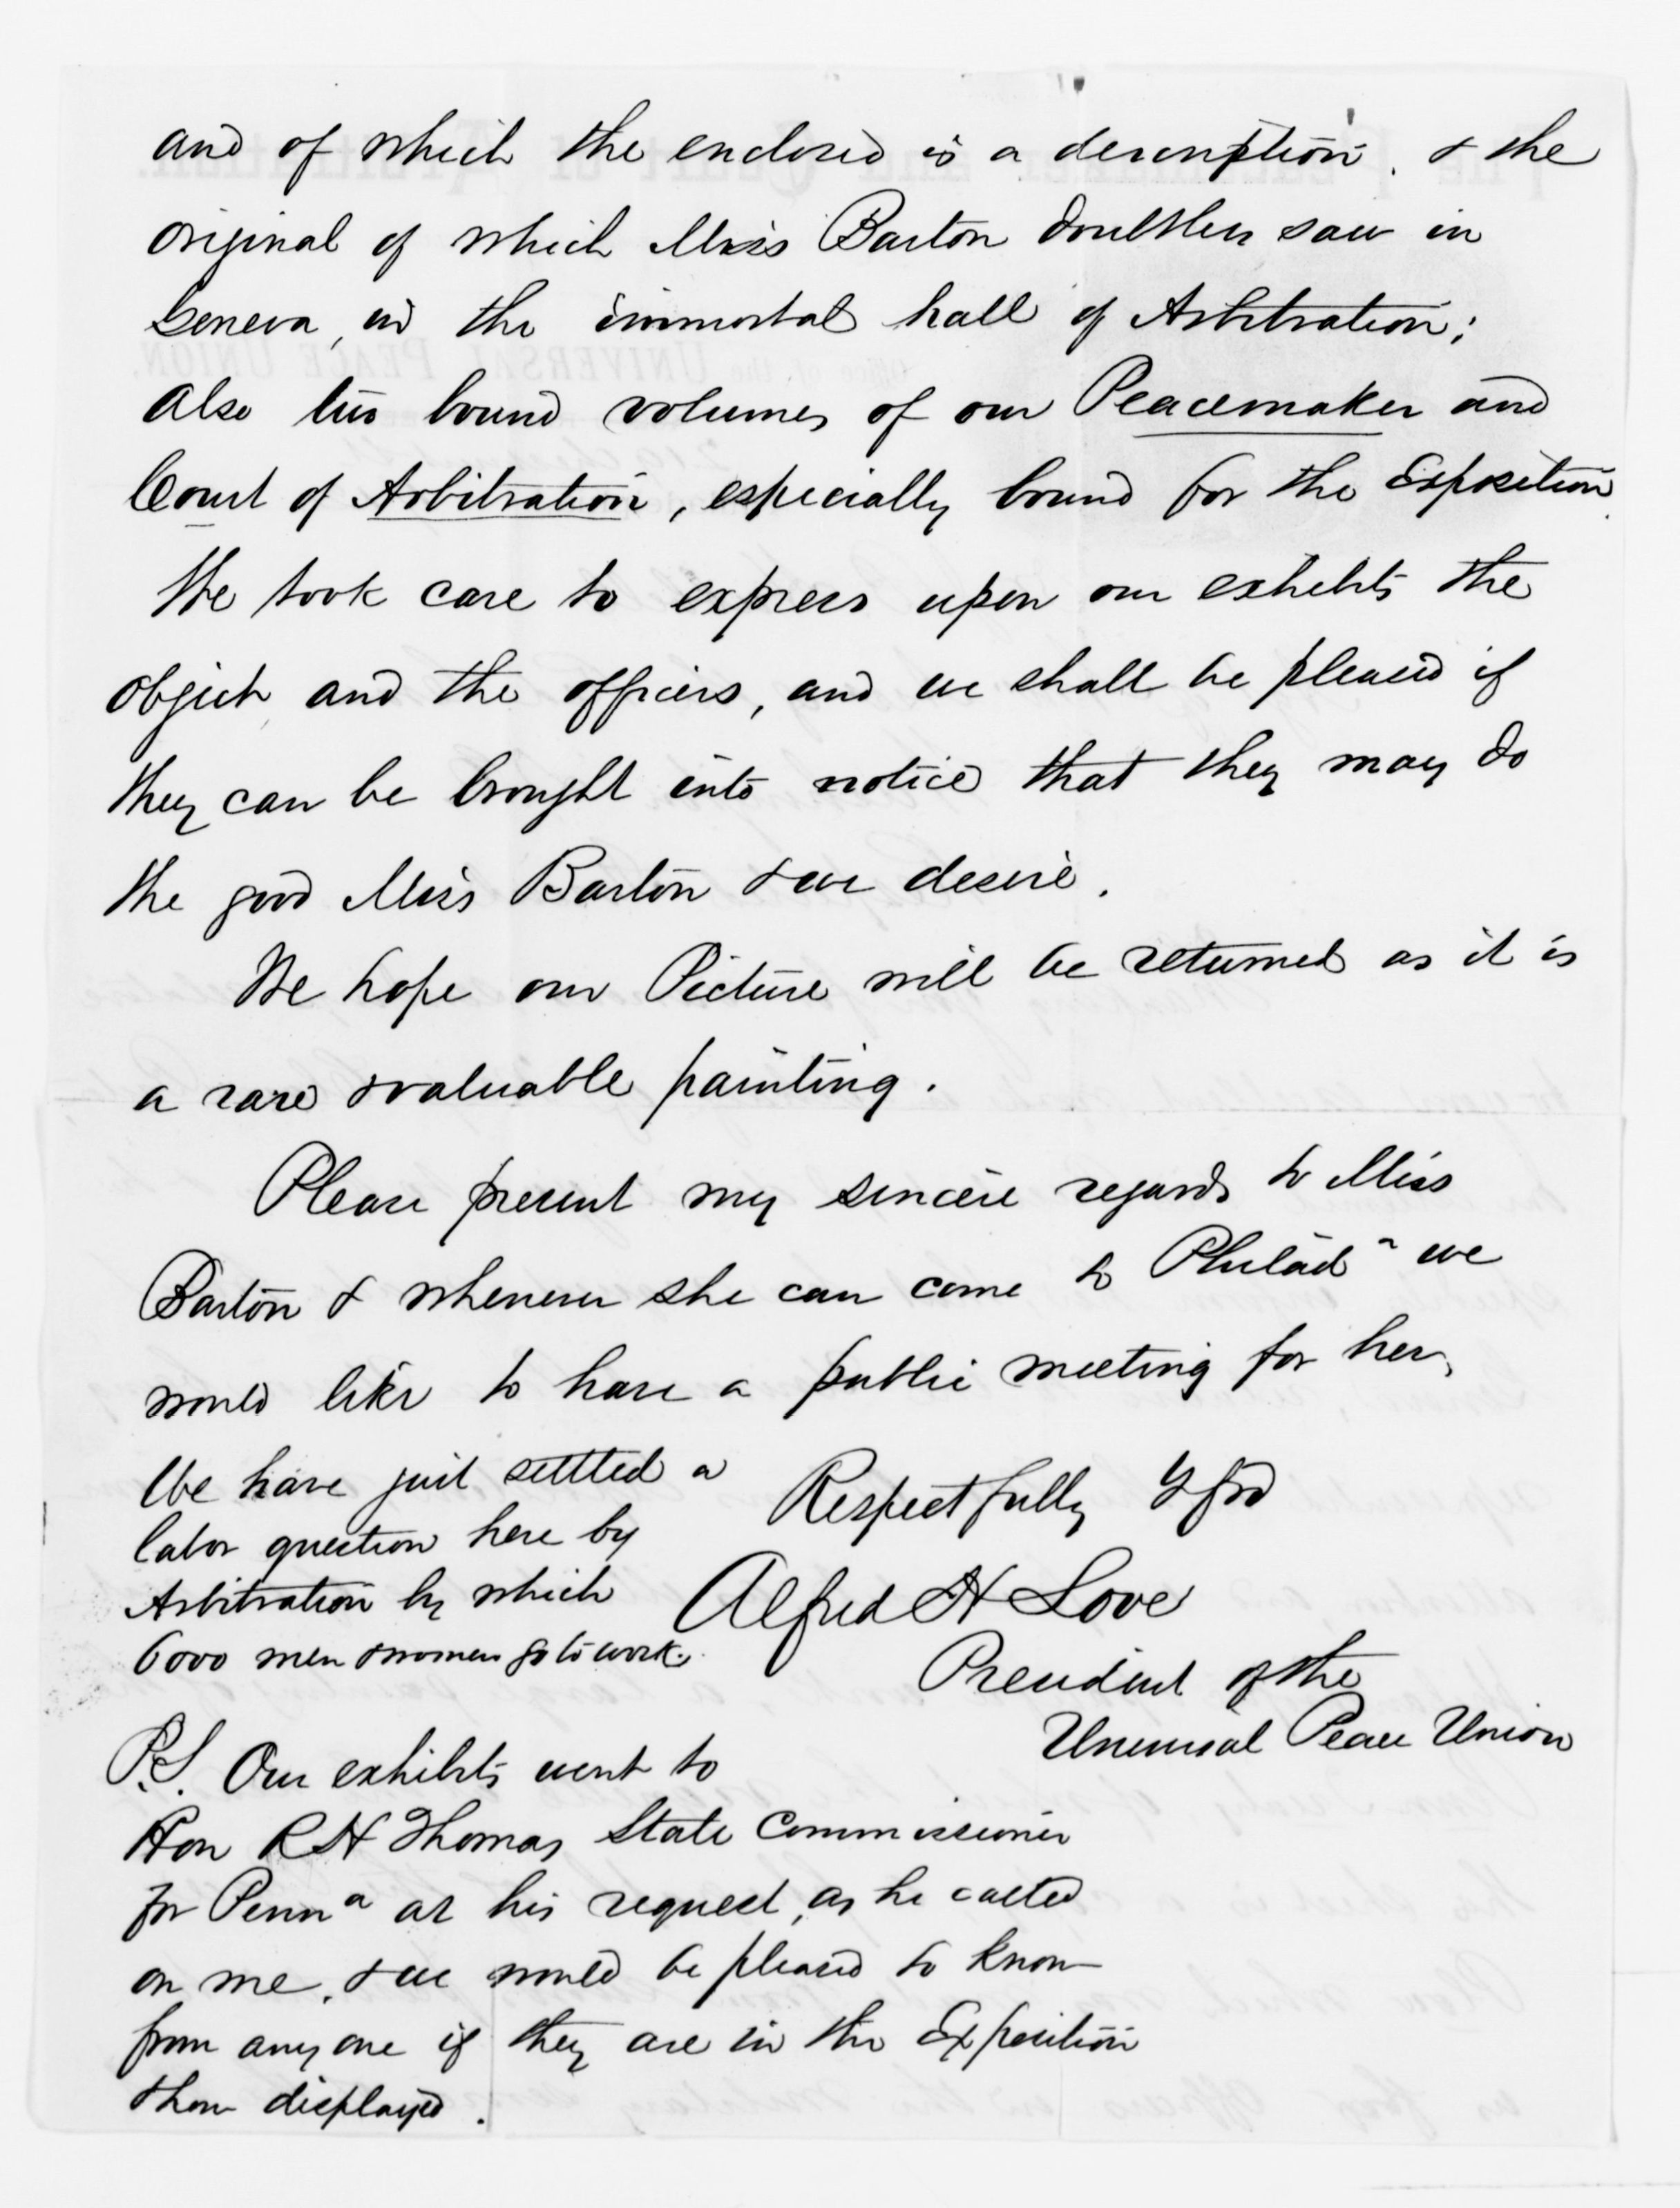 and of which the enclosed is a description. & the
original of which Miss Barton doubtless saw in
Geneva, in the immortal hall of Arbitration;
also two bound volumes of our Peacemaker and
Court of Arbitration, especially bound for the Exposition.
We took care to express upon our exhibits the
object and the officers, and we shall be pleased if
they can be brought into notice that they may do
the good Miss Barton & we desire.
We hope our Picture will be returned as it is
a rare & valuable painting.
Please present my sincere regards to Miss
Barton & whenever she can come to Philada we
would like to have a public meeting for her,
We have just settled a
labor question here by
Arbitration by which
6000 men & women go to work.
Respectfully Y frd
Alfred H Love
President of the
Universal Peace Union
P.S. Our exhibits went to
Hon R H Thomas State Commissioner
for Penna at his request, as he called
on me, & we would be pleased to know
from any one if they are in the Exposition
& how displayed.